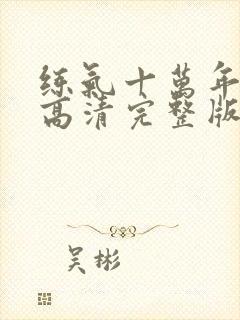 练氣十萬年
高清完整版
吴彬